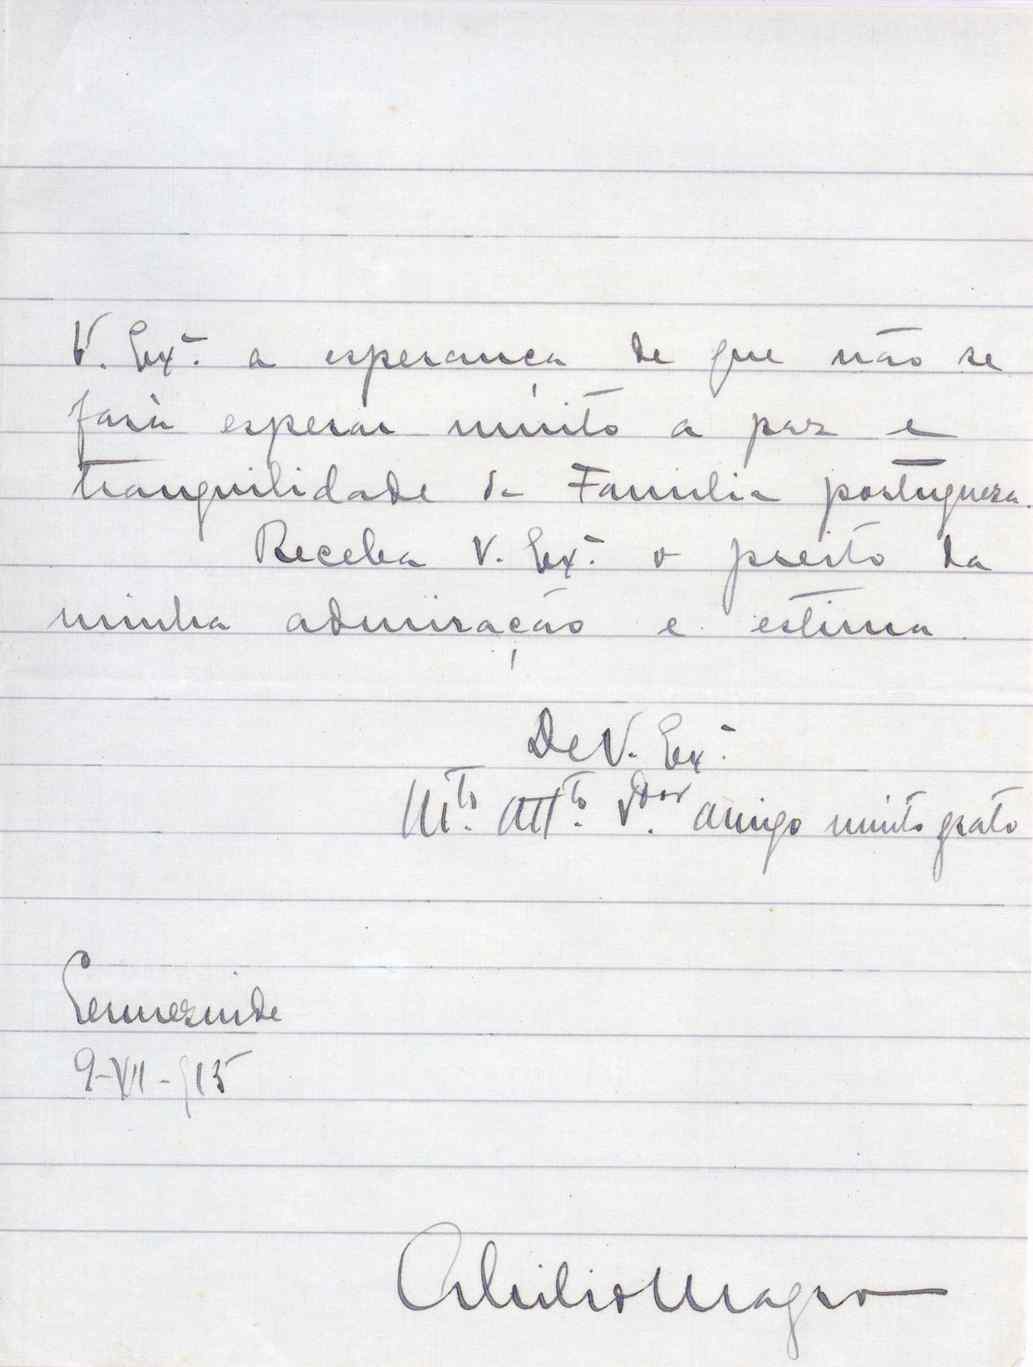 V. Exª. a esperança de que não se
fará esperar muito a paz e
tranquilidade da Familia portugueza.
Receba V. Exª. o preito da
minha admiração e estima.
De V. Exª.
Mto. Atto. Vdor amigo muito grato
Ermezinde
9-VII-915
Abilio Magro